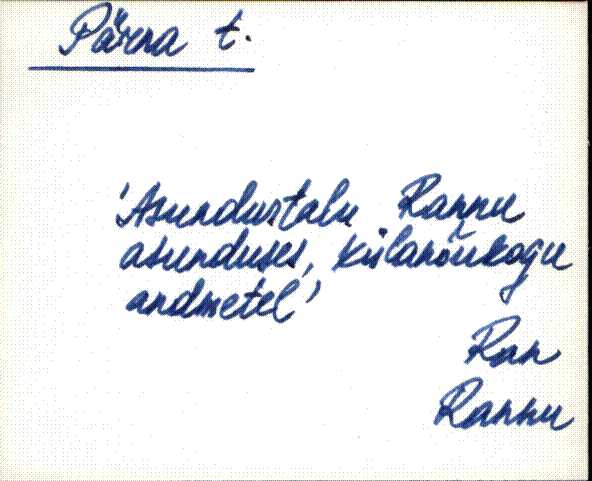 Pärna t.
'Asundustalu Rannu
asunduses, külanõukogu
andmetel'
Ran
Rannu